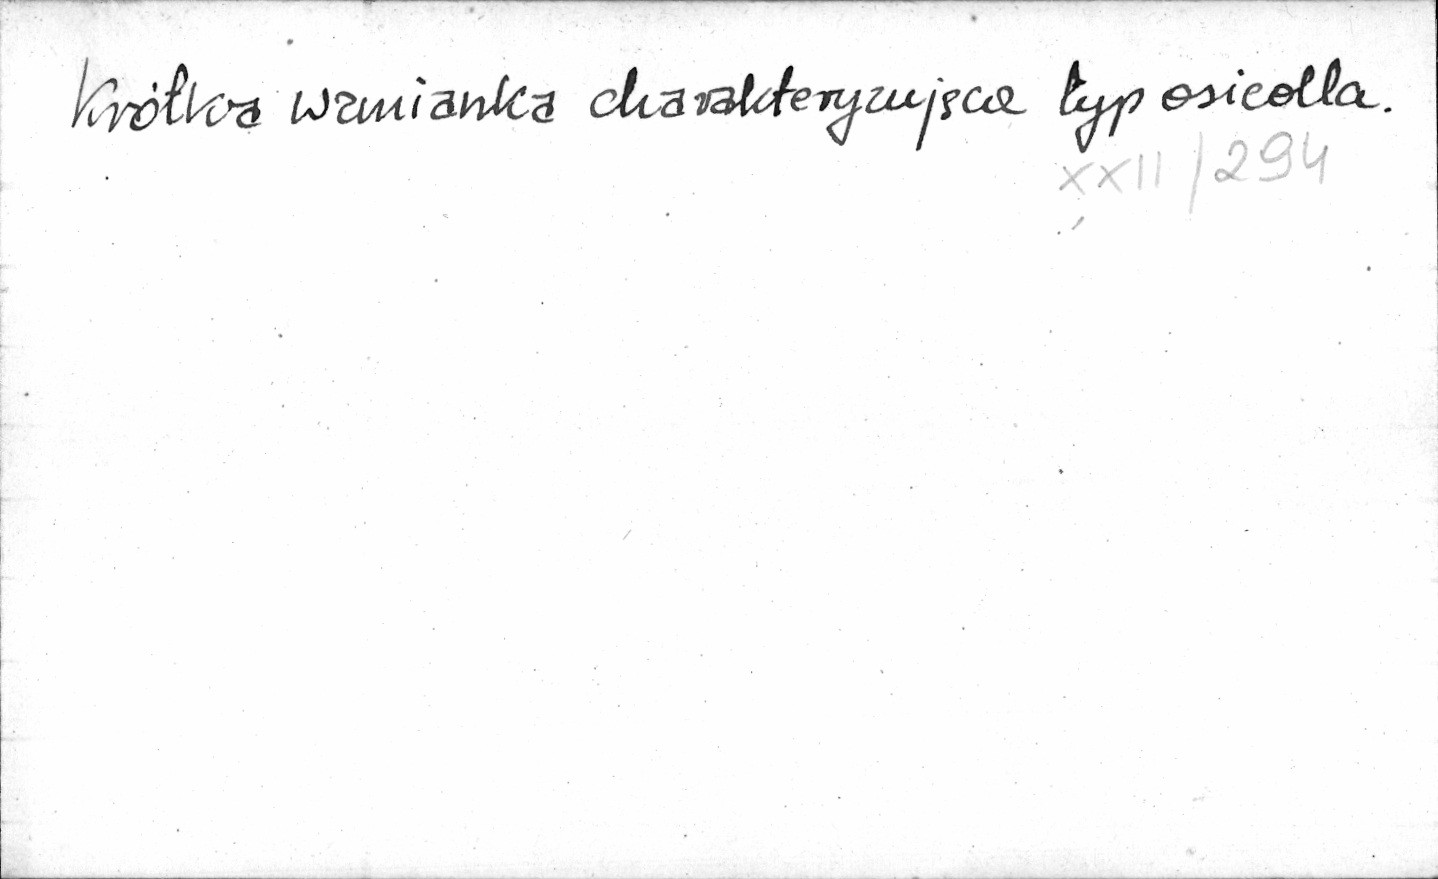 Krótka wzmianka charakteryzująca typ osiedla.
XXII/294